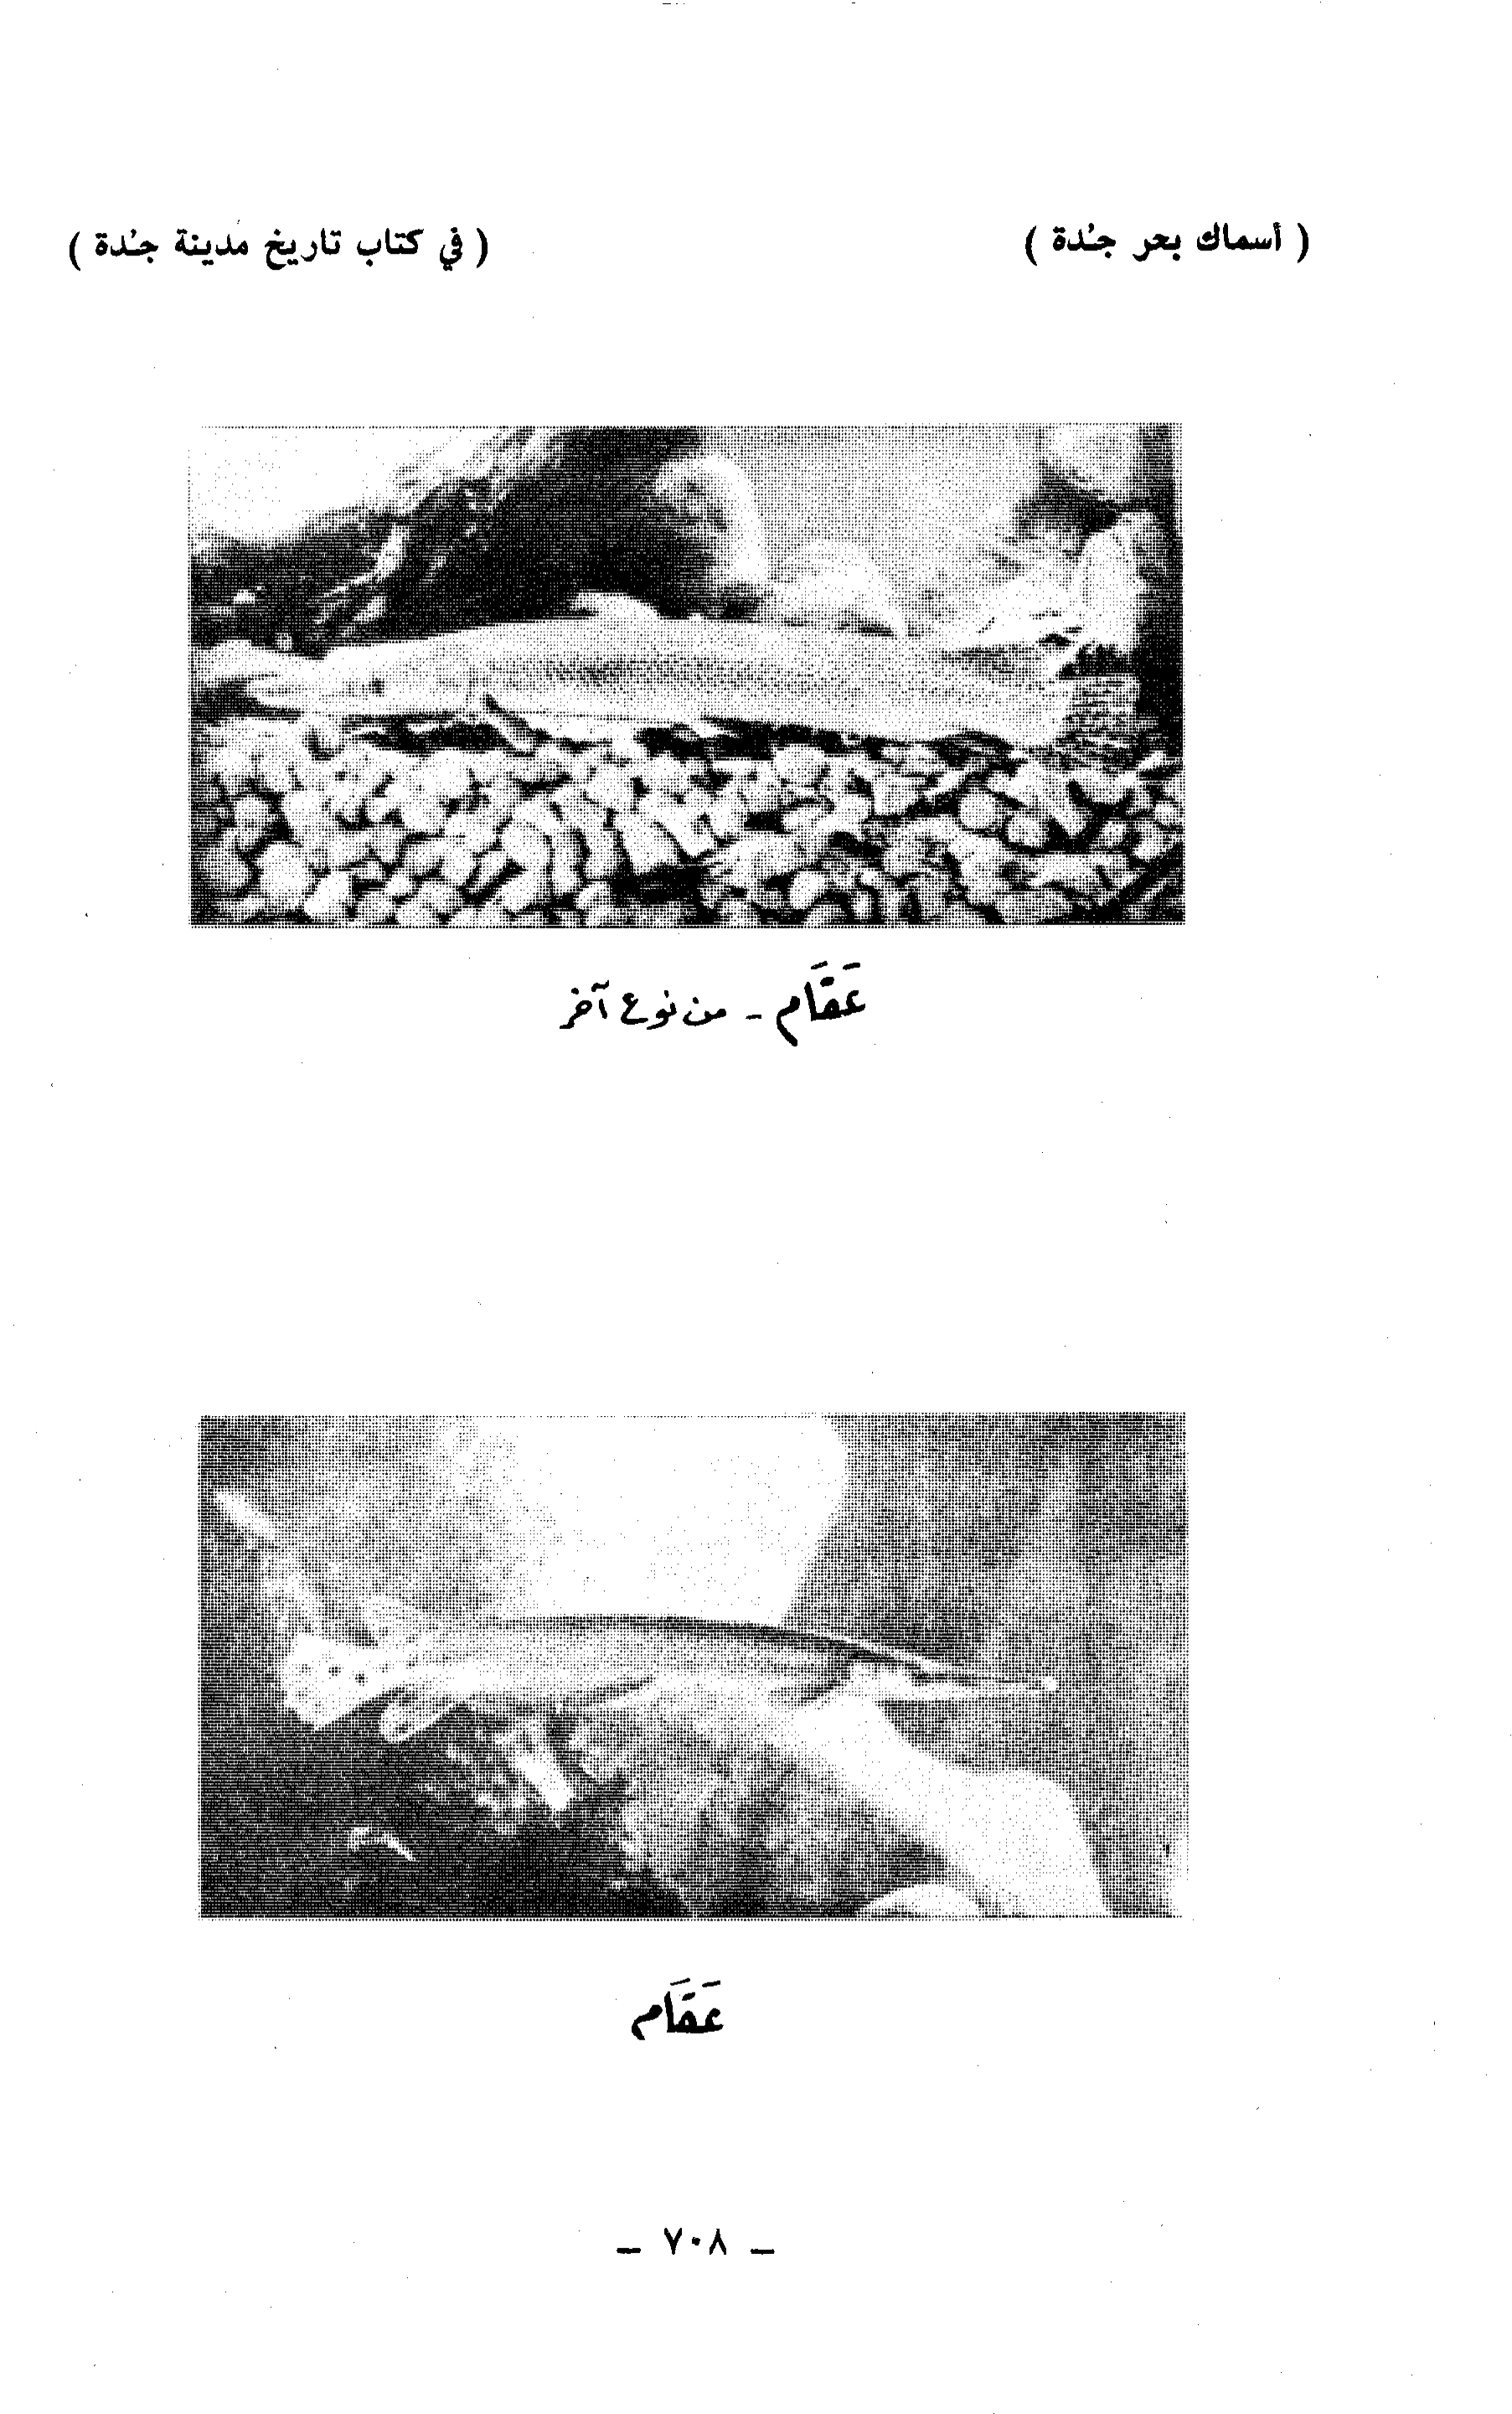 ( أسماك بحر جُدة ) ( في كتاب تاريخ مدينة جُدة )
عَقَام - من نوع آخر
عَقَام
- ٧٠٨ -